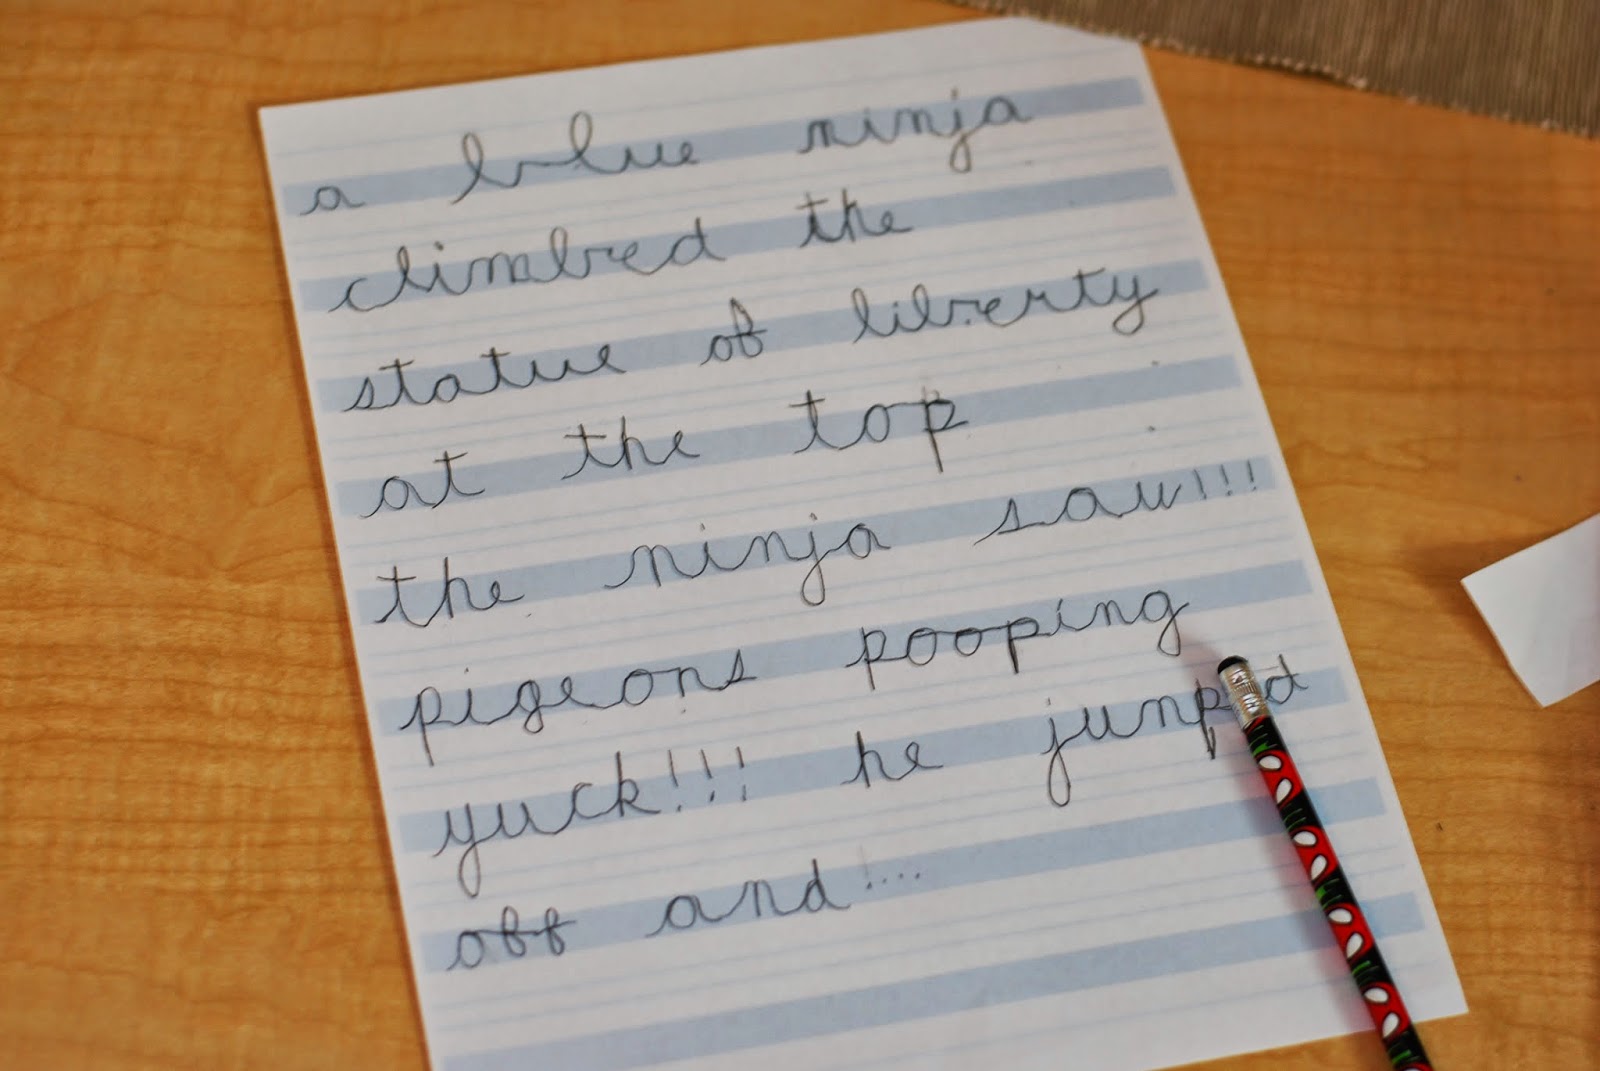 a blue ninja
climbed the
statue of liberty
at the top
the ninja saw!!!
pigeons pooping
yuck!!! he jumped
off and!....